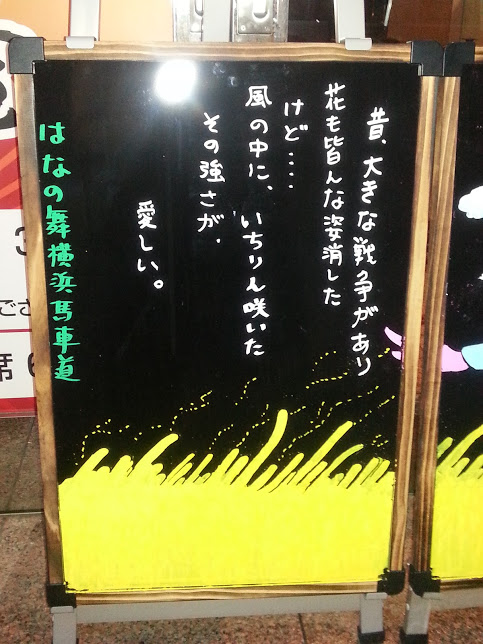 昔、大きな戦争があり
花も皆んな姿消した
けど....
風の中に、いちりん咲いた
その強さが、
愛しい。
はなの舞横浜馬車道
席6